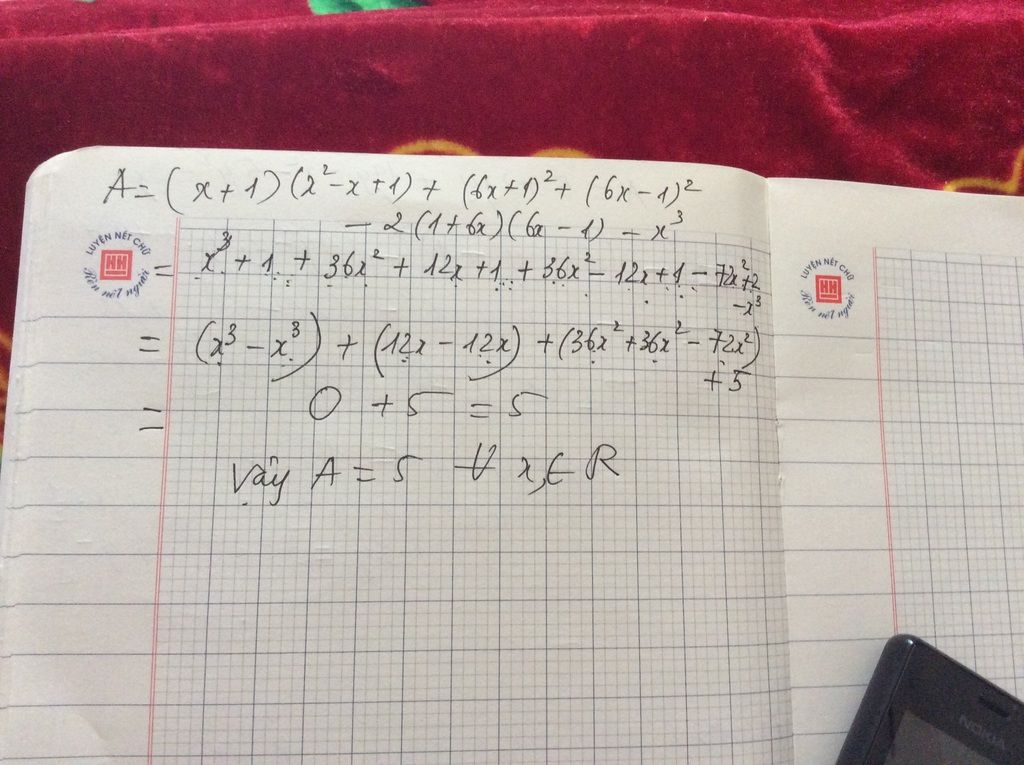 A = (x + 1)(x² - x + 1) + (6x + 1)² + (6x - 1)²
- 2(1 + 6x)(6x - 1) - x³
LUYỆN NÉT CHỮ
HH
Rèn nết người
= x³ + 1 + 36x² + 12x + 1 + 36x² - 12x + 1 - 72x² + 2
- x³
LUYỆN NÉT CHỮ
HH
Rèn nết người
= (x³ - x³) + (12x - 12x) + (36x² + 36x² - 72x²)
+ 5
= 0 + 5 = 5
Vậy A = 5 ∀ x, ∈ R
NOKIA